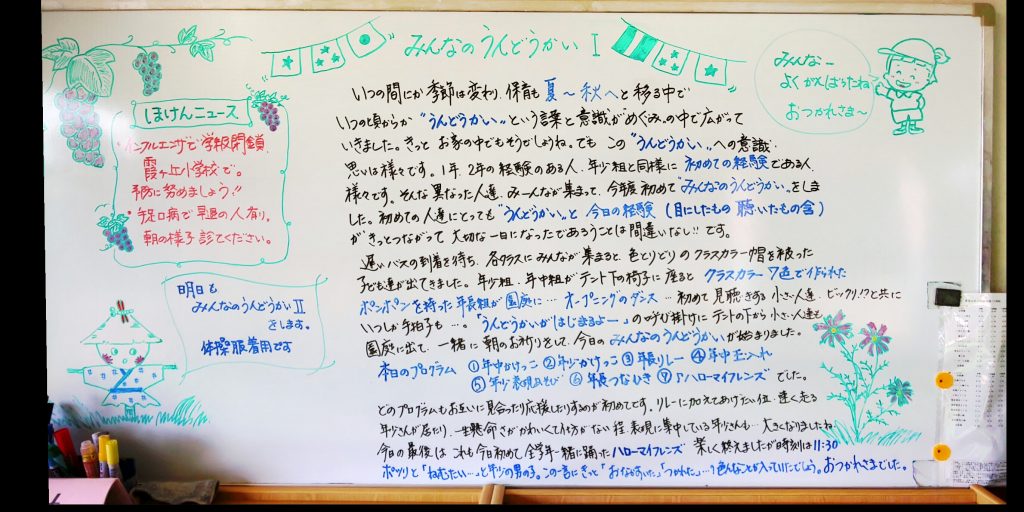 みんなのうんどうかい I
みんなー
よくがんばったね
おつかれさま〜
ほけんニュース
・インフルエンザで学級閉鎖
霞ヶ丘小学校で。
予防に努めましょう!!
・手足口病で早退の人有り。
朝の様子診てください。
明日も
みんなのうんどうかいII
をします。
体操服着用です
いつの間にか季節は変わり、保育も夏〜秋へと移る中で
いつの頃からか "うんどうかい" という言葉と意識がめぐみの中で広がって
いきました。きっとお家の中でもそうでしょうね。でもこの "うんどうかい" への意識・
思いは様々です。1年、2年の経験のある人、年少組と同様に初めての経験である人、
様々です。そんな異なった人達、みーんなが集まって、今年度初めて "みんなのうんどうかい" をしま
した。初めての人達にとっても "うんどうかい" と今日の経験(目にしたもの 聴いたもの含)
がきっとつながって大切な一日になったであろうことは間違いなし!!です。
遅いバスの到着を待ち、各クラスにみんなが集まると、色とりどりのクラスカラー帽を被った
子ども達が出てきました。年少組、年中組がテント下の椅子に座るとクラスカラー7色で作られた
ポンポンを持った年長組が園庭に… オープニングのダンス… 初めて見聴きする小さい人達、ビックリ!?と共に
いつしか手拍子も…。「うんどうかいがはじまるよー」の呼び掛けにテントの下から小さい人達も
園庭に出て、一緒に朝のお祈りをして、今日のみんなのうんどうかいが始まりました。
本日のプログラム ①年中かけっこ ②年少かけっこ ③年長リレー ④年中玉入れ
⑤年少表現あそび ⑥年長つなひき ⑦♪ハローマイフレンズ でした。
どのプログラムもお互いに見合ったり応援したりするのが初めてです。リレーに加えてあげたい位、速く走る
年少さんが居たり、一生懸命さがかわいくて仕方がない程、表現に集中している年少さんも… 大きくなりましたね
今日の最後は これも今日初めて、全学年一緒に踊ったハローマイフレンズ 楽しく終えましたが時刻は11:30
ポツリと「ねむたい…」と年少の男の子。この一言にきっと「おなかすいた」「つかれた…」色んなことが入っていたでしょう。おつかれさまでした。